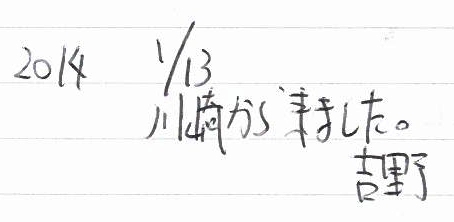 2014 1/13
川崎から来ました。
吉野